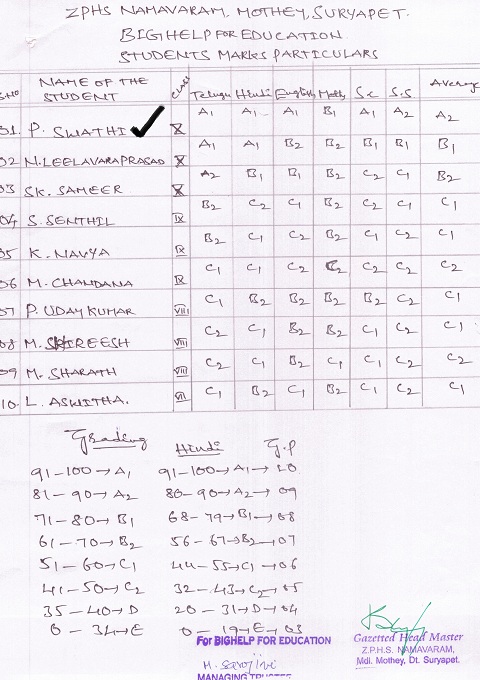 ZPHS NAMAVARAM, MOTHEY, SURYAPET.
BIGHELP FOR EDUCATION
STUDENTS MARKS PARTICULARS
S.No NAME OF THE STUDENT Class Telugu Hindi English Maths S.c S.S Average
01. P. SWATHI X A1 A1 A1 B1 A1 A2 A2
02 N. LEELAVARA PRASAD X A1 A1 B2 B2 B1 B1 B1
03 SK. SAMEER X A2 B1 B1 B2 C2 C1 B2
04 S. SENTHIL IX B2 C2 C1 B2 C2 C1 C1
05 K. NAVYA IX B2 C1 C2 B2 C1 C2 C1
06 M. CHANDANA IX C1 C1 C2 C2 C2 C2 C2
07 P. UDAY KUMAR VIII C1 B2 B2 B2 B2 C2 C1
08 M. SHIREESH VIII C2 C1 B2 B2 C1 C2 C1
09 M. SHARATH VIII C2 C2 B2 C1 C1 C2 C2
10. L. ASWITHA. VII C1 B2 C1 B2 C1 C2 C1
Grading Hindi G.P
91-100→A1 91-100→A1→10
81-90→A2 80-90→A2→09
71-80→B1 68-79→B1→08
61-70→B2 56-67→B2→07
51-60→C1 44-55→C1→06
41-50→C2 32-43→C2→05
35-40→D 20-31→D→04
0-34→E 0-19→E→03
For BIGHELP FOR EDUCATION
M. Sarojini
MANAGING TRUSTEE
Gazetted Head Master
Z.P.H.S. NAMAVARAM,
Mdl. Mothey, Dt. Suryapet.